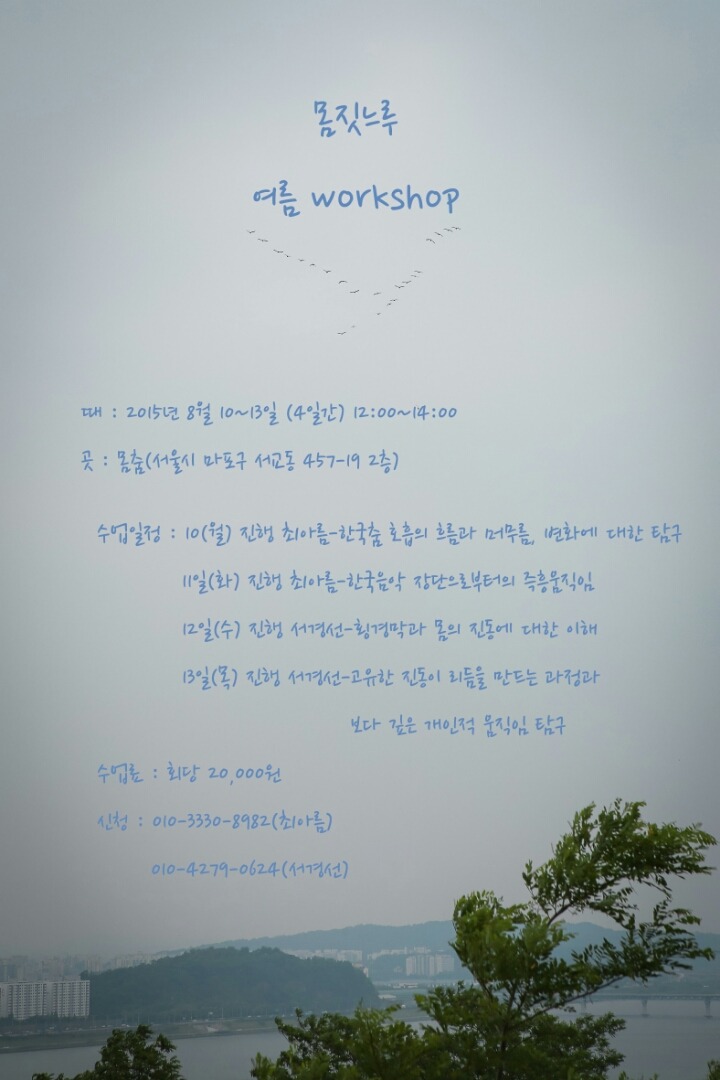 몸짓느루
여름 workshop
때 : 2015년 8월 10~13일 (4일간) 12:00~14:00
곳 : 몸춤(서울시 마포구 서교동 457-19 2층)
수업일정 : 10(월) 진행 최아름-한국춤 호흡의 흐름과 머무름, 변화에 대한 탐구
11일(화) 진행 최아름-한국음악 장단으로부터의 즉흥움직임
12일(수) 진행 서경선-횡경막과 몸의 진동에 대한 이해
13일(목) 진행 서경선-고유한 진동이 리듬을 만드는 과정과
보다 깊은 개인적 움직임 탐구
수업료 : 회당 20,000원
신청 : 010-3330-8982(최아름)
010-4279-0624(서경선)